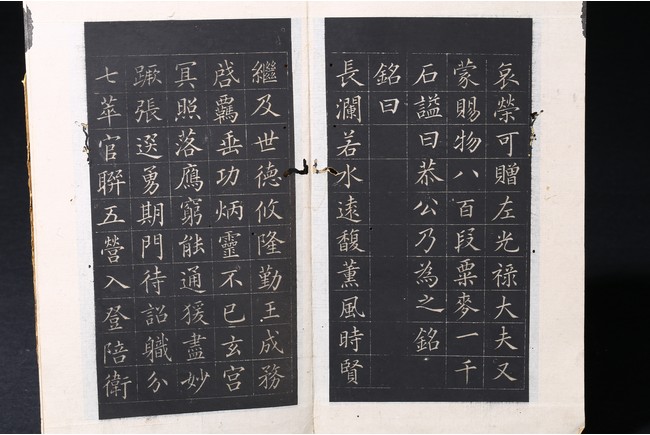 哀榮可贈左光禄大夫又
蒙賜物八百段粟麥一千
石謚曰恭公乃為之銘
銘曰
長瀾若水遠馥薰風時賢
繼及世德攸隆勤王成務
啓霸垂功炳靈不已玄宫
冥照落鴈窮能通猨盡妙
蹶張選勇期門待詔職分
七萃官聯五營入登陪衛